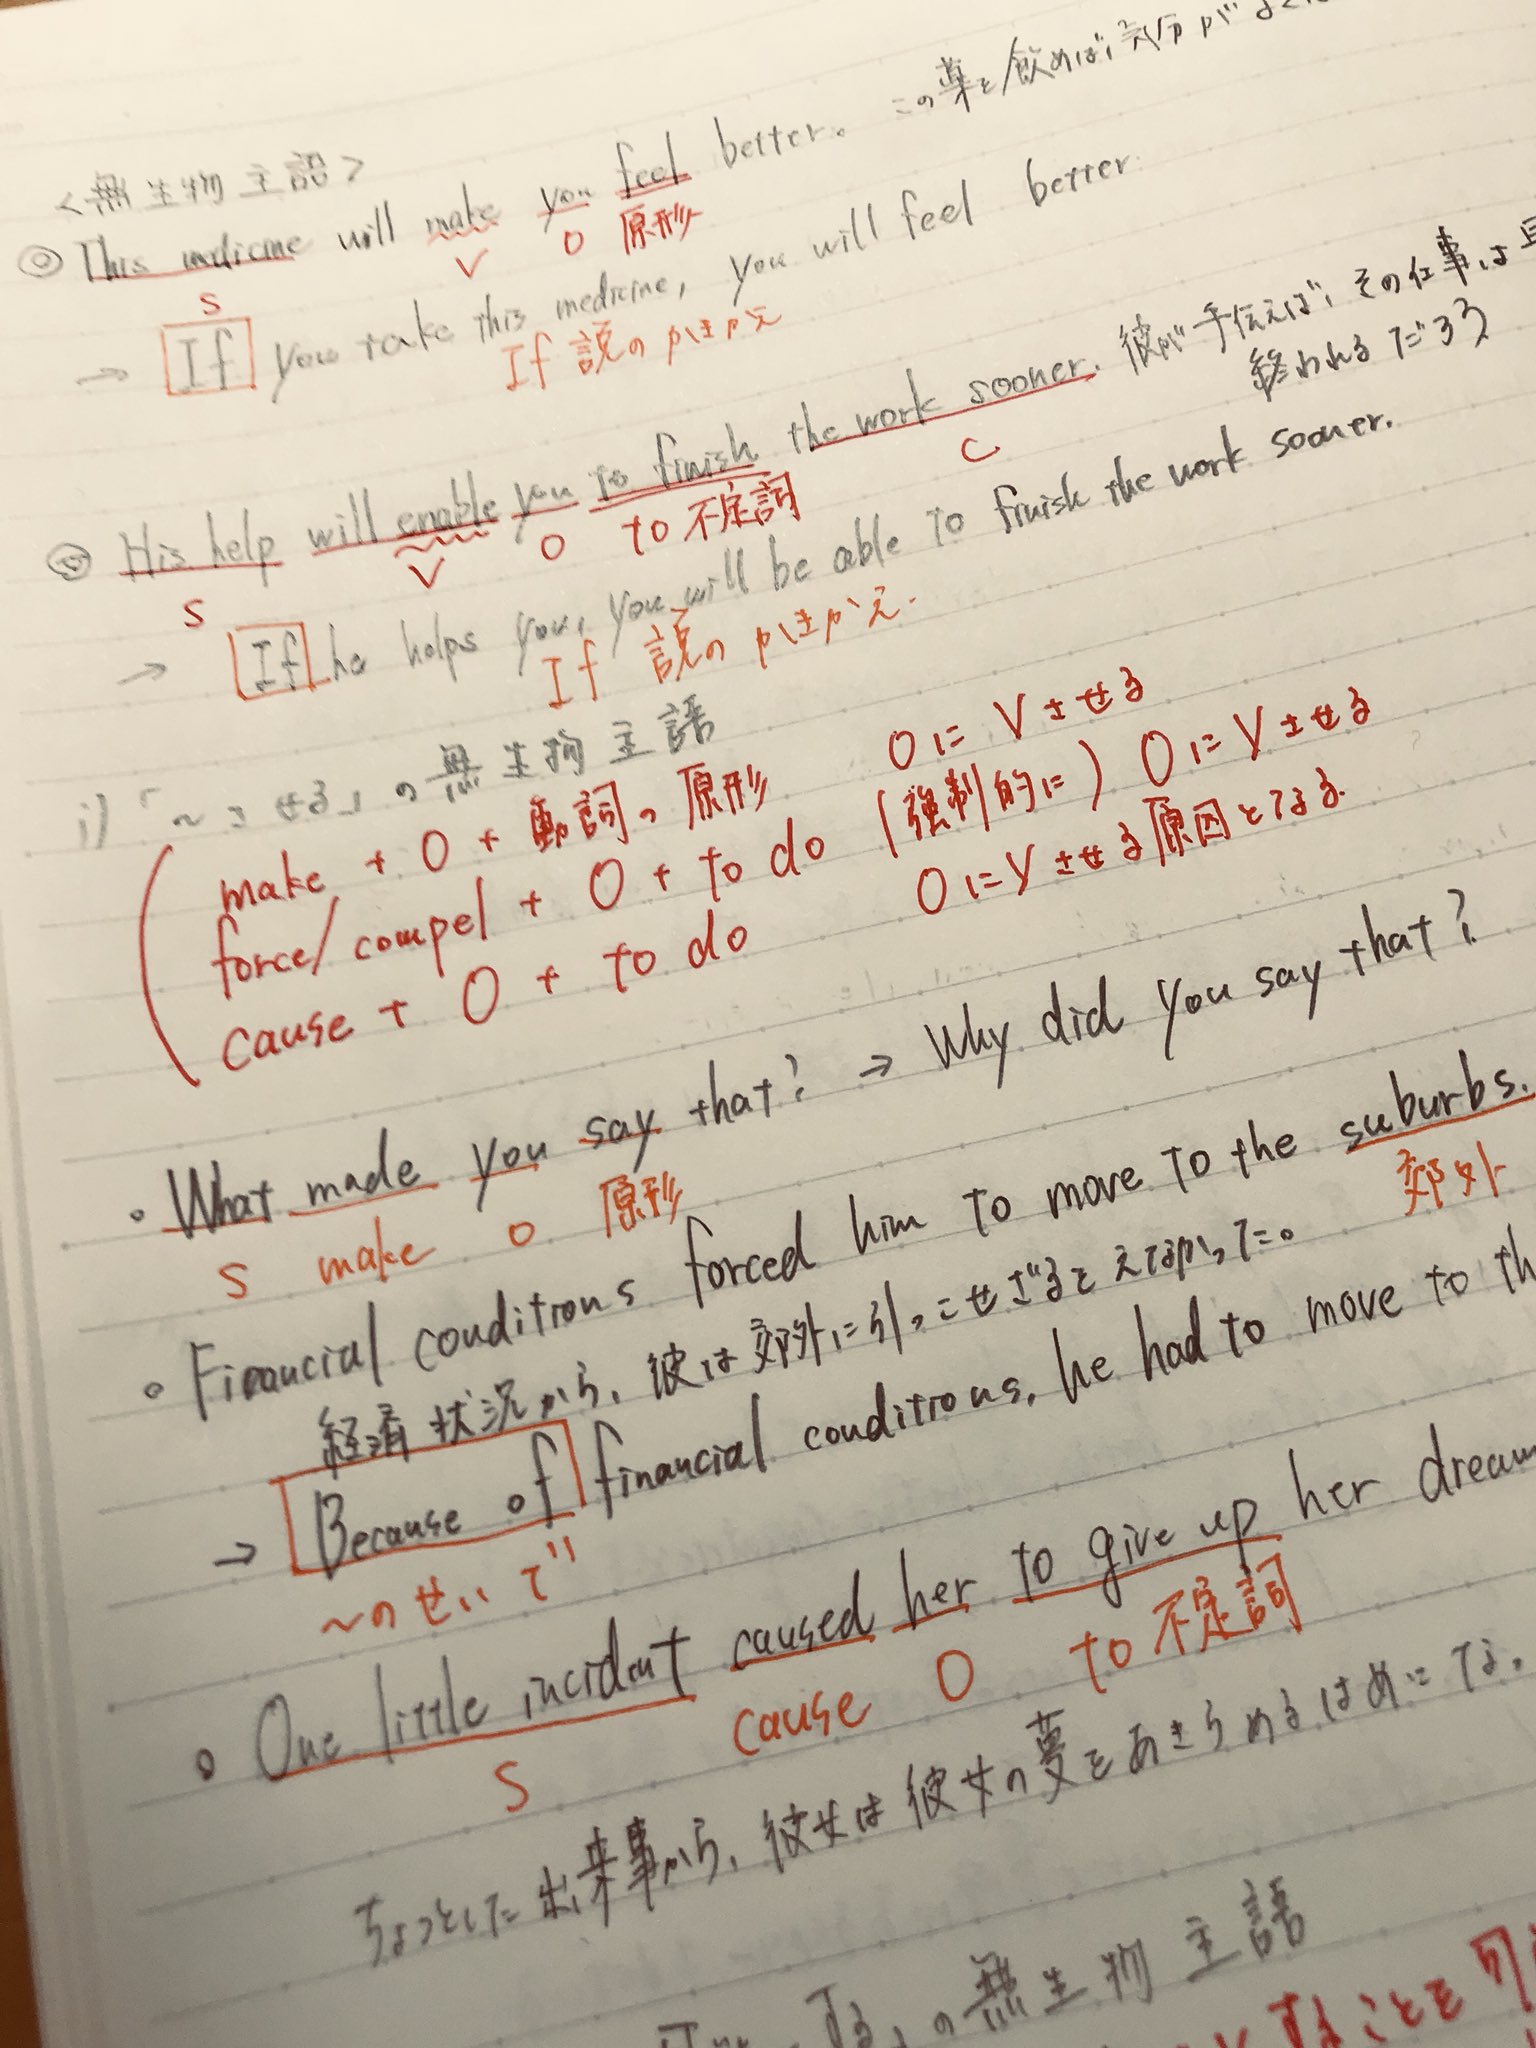 <無生物主語>
◎ This medicine will make you feel better. この薬を飲めば、気分がよくな
S V O 原形
→ If you take this medicine, you will feel better.
If 説のかきかえ
◎ His help will enable you to finish the work sooner. 彼が手伝えば、その仕事は早
S V O to不定詞 C
終われるだろう
→ If he helps you, you will be able to finish the work sooner.
If 説のかきかえ.
i)「〜させる」の無生物主語
make + O + 動詞の原形 OにVさせる
force/compel + O + to do (強制的に) OにVさせる
cause + O + to do OにVさせる原因となる.
・What made you say that? → Why did you say that?
S make O 原形
・Financial conditions forced him to move to the suburbs.
郊外
経済状況から、彼は郊外に引っこせざるをえなかった。
→ Because of financial conditions, he had to move to th
〜のせいで
・One little incident caused her to give up her dream
S cause O to不定詞
ちょっとした出来事から、彼女は彼女の夢をあきらめるはめにな、
する」の無生物主語
することを可